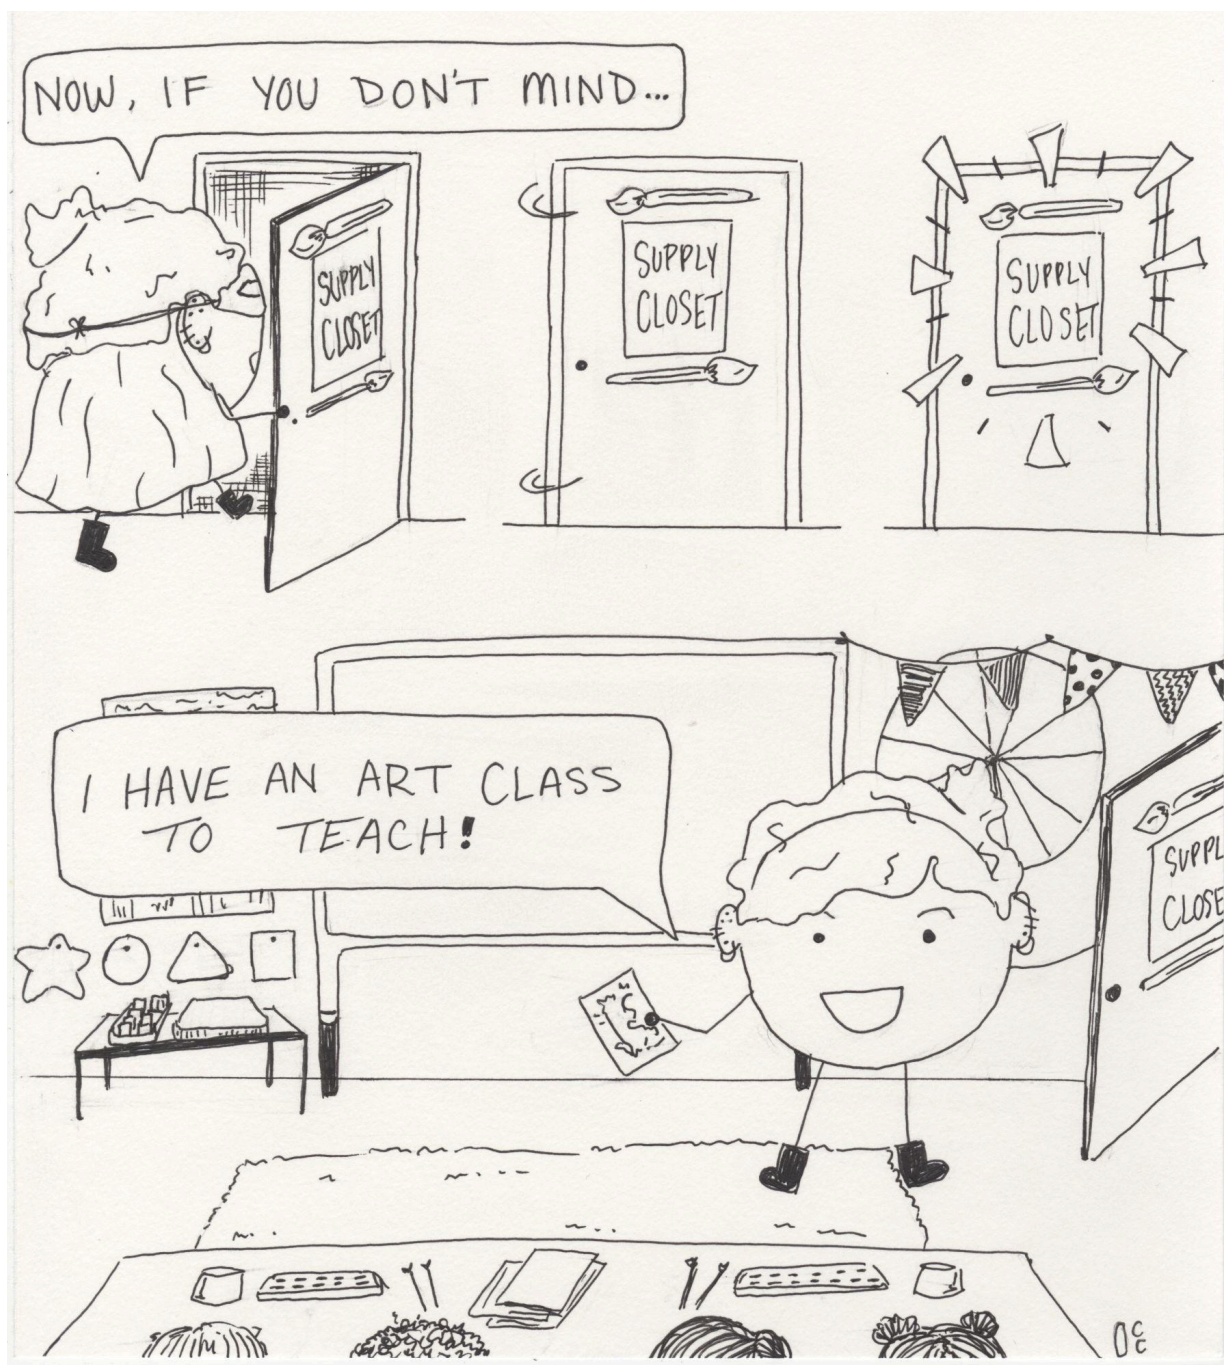 NOW, IF YOU DON'T MIND...
SUPPLY
CLOSET
SUPPLY
CLOSET
SUPPLY
CLOSET
I HAVE AN ART CLASS
TO TEACH!
SUPPL
CLOSE